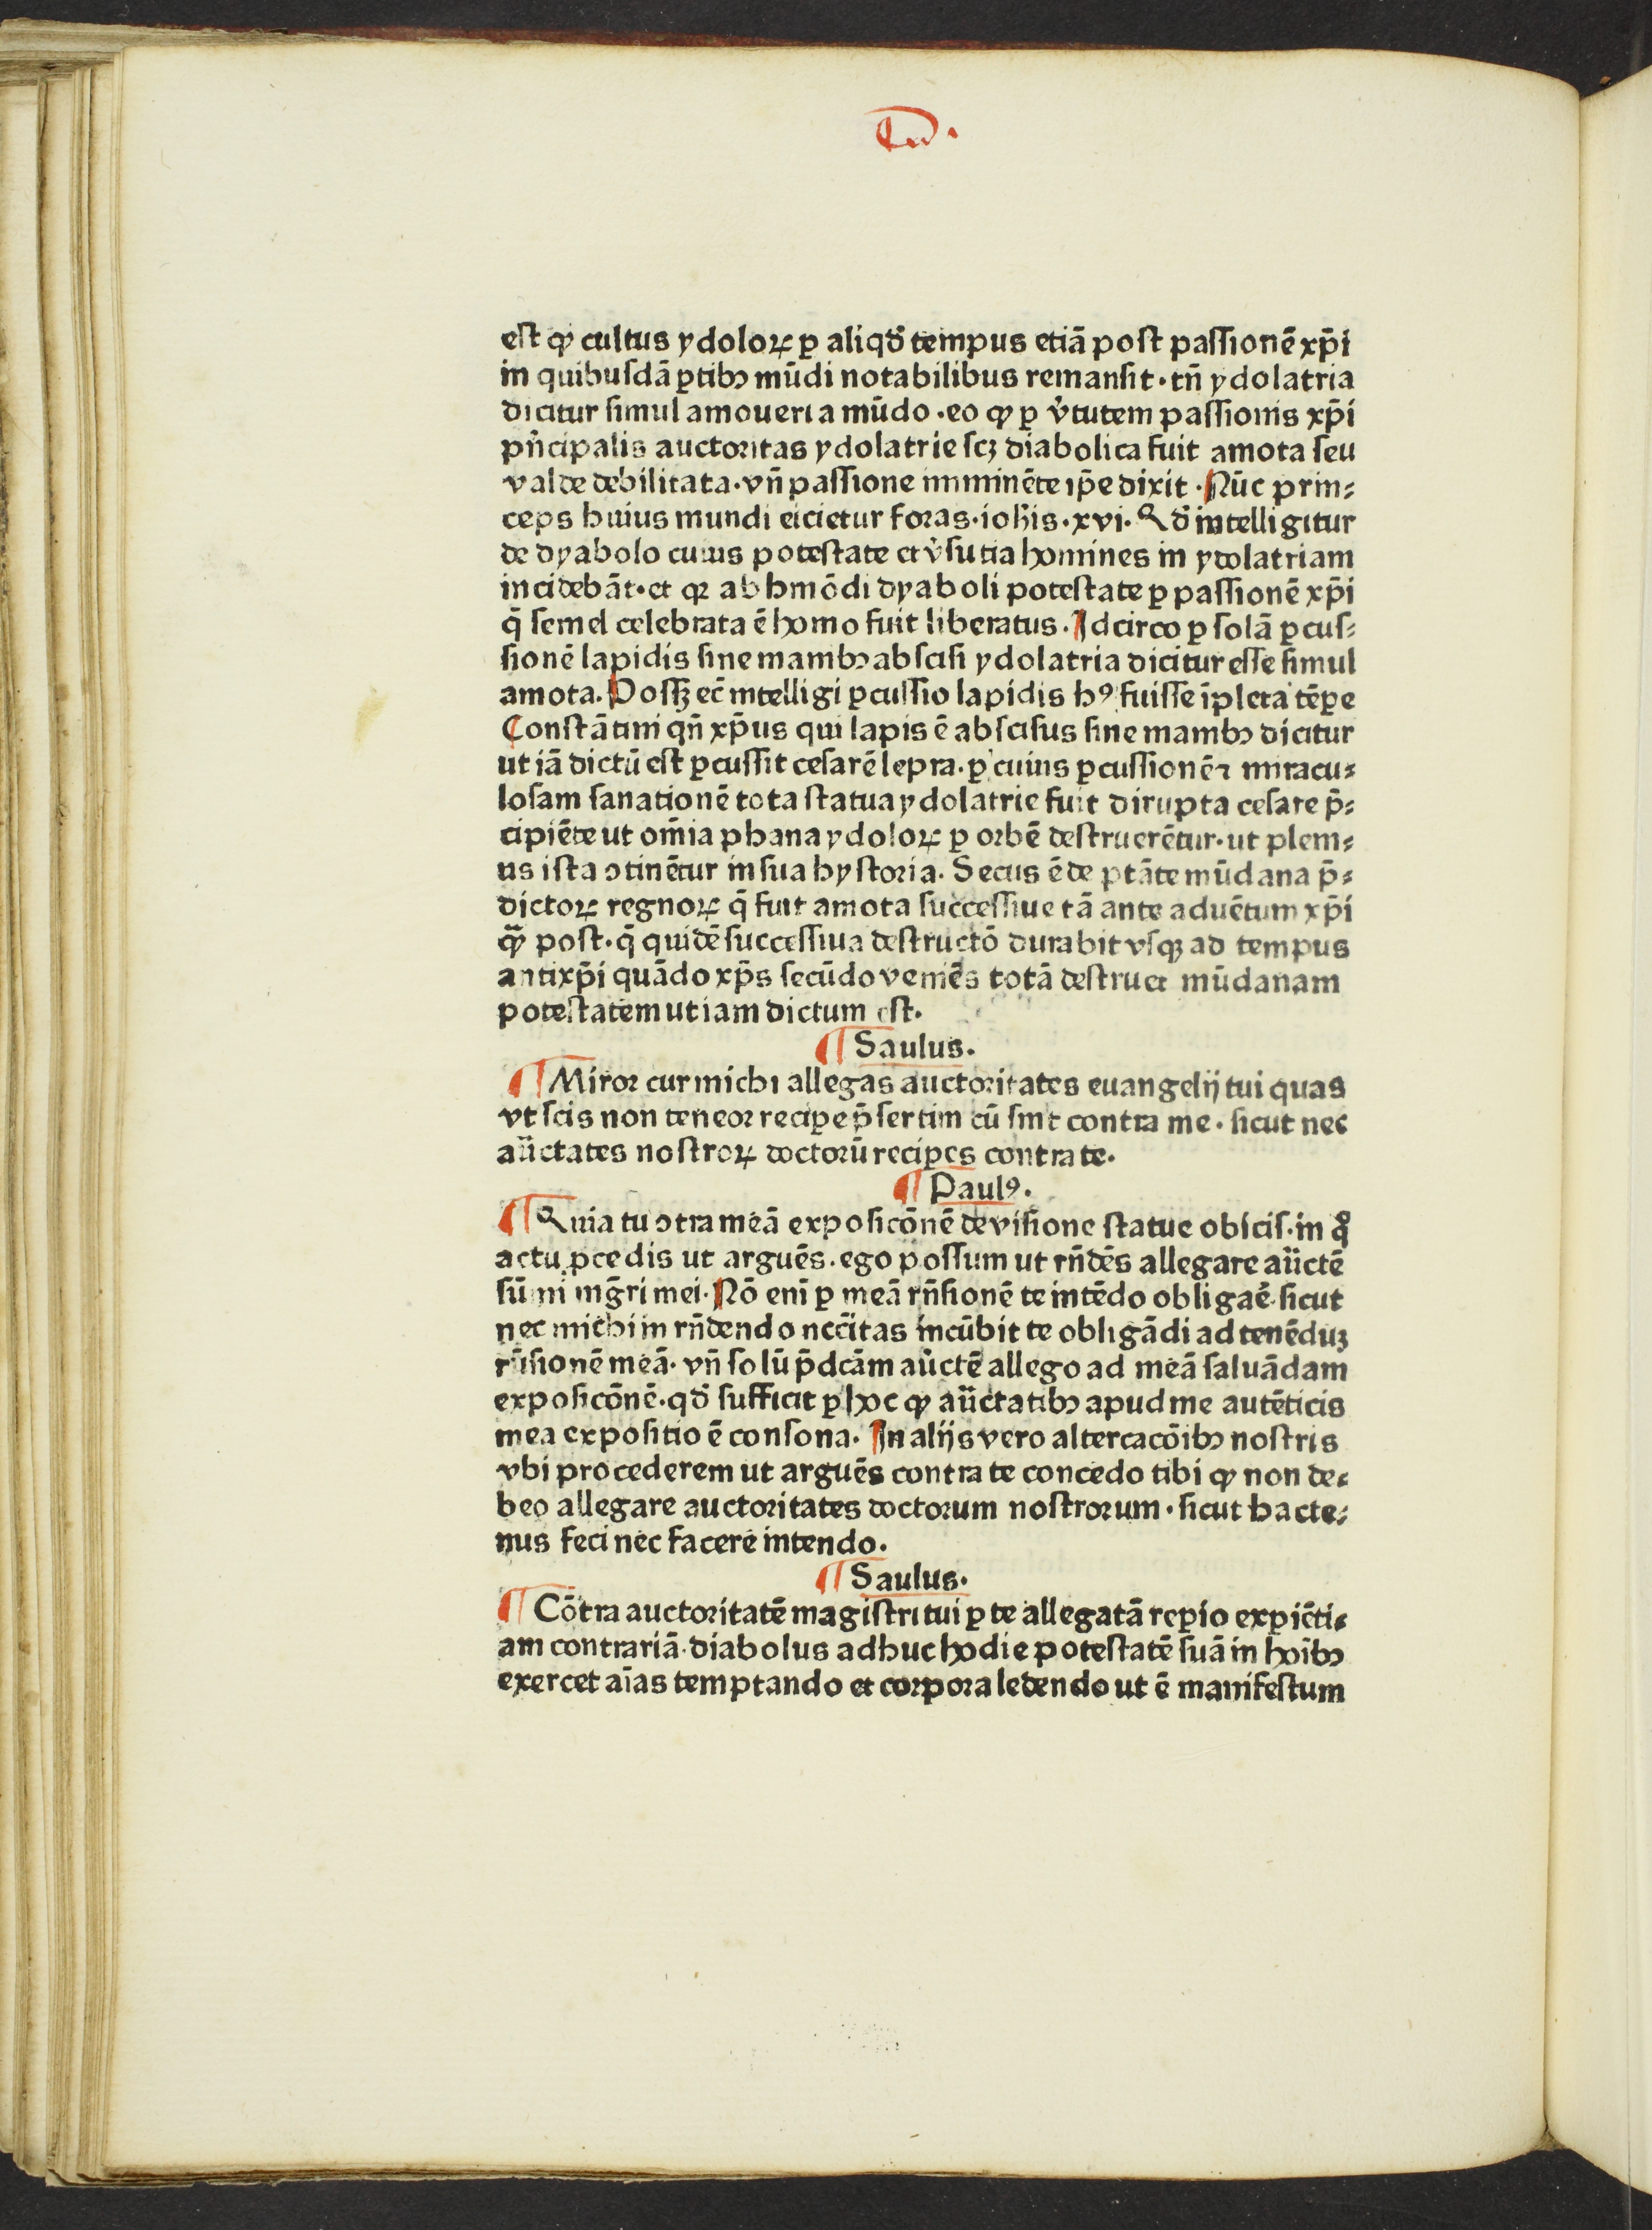 est ꝙ cultus ydoloꝝ ꝑ aliqđ tempus etiā post passionē xp̄i
in quibusdā ꝑtibꝫ mūdi notabilibus remansit · tn̄ ydolatria
dicitur simul amoueri a mūdo · eo ꝙ ꝑ v̓tutem passionis xp̄i
pn̄cipalis auctoritas ydolatrie scꝫ diabolica fuit amota seu
valde debilitata · vn̄ passione imminēte ip̄e dixit · Nūc prin⸗
ceps huius mundi eicietur foras · ioh̄is · xvi · Qđ intelligitur
de dyabolo cuius potestate et v̓sutia homines in ydolatriam
incidebāt · et qꝛ ab hmōdi dyaboli potestate ꝑ passionē xp̄i
q̄ semel celebrata ē homo fuit liberatus · Idcirco ꝑ solā ꝑcus⸗
sionē lapidis sine manibꝫ abscisi ydolatria dicitur esse simul
amota. Possꝫ ec̄ intelligi ꝑcussio lapidis hꝰ fuisse īpleta tēꝑe
Constātini qn̄ xp̄us qui lapis ē abscisus sine manibꝫ dicitur
ut iā dictū est ꝑcussit cesarē lepra · ꝑ cuius ꝑcussionē ⁊ miracu⸗
losam sanationē tota statua ydolatrie fuit dirupta cesare p̄⸗
cipiēte ut om̄ia phana ydoloꝝ ꝑ orbē destruerētur · ut pleni⸗
us ista ꝯtinētur in sua hystoria. Secus ē de ptāte mūdana p̄⸗
dictoꝝ regnoꝝ q̄ fuit amota successiue tā ante aduētum xp̄i
qꝫ̄ post · q̄ quidē successiua destructō durabit vsqꝫ ad tempus
antixp̄i quādo xp̄s secūdo veniēs totā destruet mūdanam
potestatem ut iam dictum est.
¶ Saulus.
¶ Miror cur michi allegas auctoritates euangelij tui quas
vt scis non teneor reciꝑe p̄sertim cū sint contra me · sicut nec
aūctates nostroꝝ doctorū reciꝑes contra te.
¶ Paulꝰ.
¶ Quia tu ꝯtra meā exposicōnē de visione statue obicis · in qͦ
actu ꝓcedis ut arguēs · ego possum ut rn̄dēs allegare aūctē
sūmi mg̃ri mei · Nō enī ꝑ meā rn̄sionē te intēdo obligaē · sicut
nec michi in rn̄dendo nec̄itas incūbit te obligādi ad tenēduꝫ
rn̄sionē meā · vn̄ solū p̄dcām aūctē allego ad meā saluādam
exposicōnē · qđ sufficit ꝑ hoc ꝙ aūctatibꝫ apud me autēticis
mea expositio ē consona · In alijs vero altercacōibꝫ nostris
vbi procederem ut arguēs contra te concedo tibi ꝙ non de⸗
beo allegare auctoritates doctorum nostrorum · sicut hacte⸗
nus feci nec facere intendo.
¶ Saulus.
¶ Cōtra auctoritatē magistri tui ꝑ te allegatā reꝑio exꝑiēti⸗
am contrariā · diabolus adhuc hodie potestatē suā in hoībꝫ
exercet aīas temptando et corpora ledendo ut ē manifestum